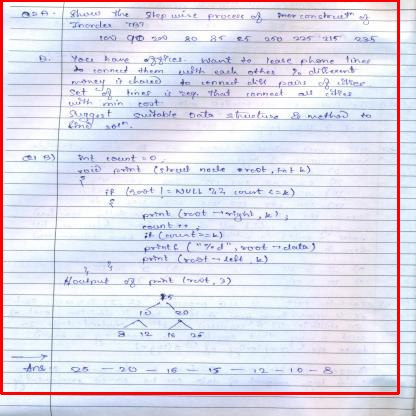 Q2 A. Show the stepwise process of inorconstructn of
Inorder TBT
100 90 200 80 85 25 250 225 215 235
B. You have offices. Want to lease phone lines
to connect them with each other & different
money is charged to connect diff pairs of
set of lines is req. that connect all cities
with min cost.
Suggest suitable Data structure & method to
find soln.
Q1 B) int count = 0;
void print (struct node *root, int k)
{
if (root != NULL && count <= k)
{
print (root → right, k);
count ++;
if (count == k)
printf ("%d", root → data)
print (root → left, k)
} }
output of print (root, 3)
15
10 20
8 12 16 25
Ans: 25 - 20 - 16 - 15 - 12 - 10 - 8